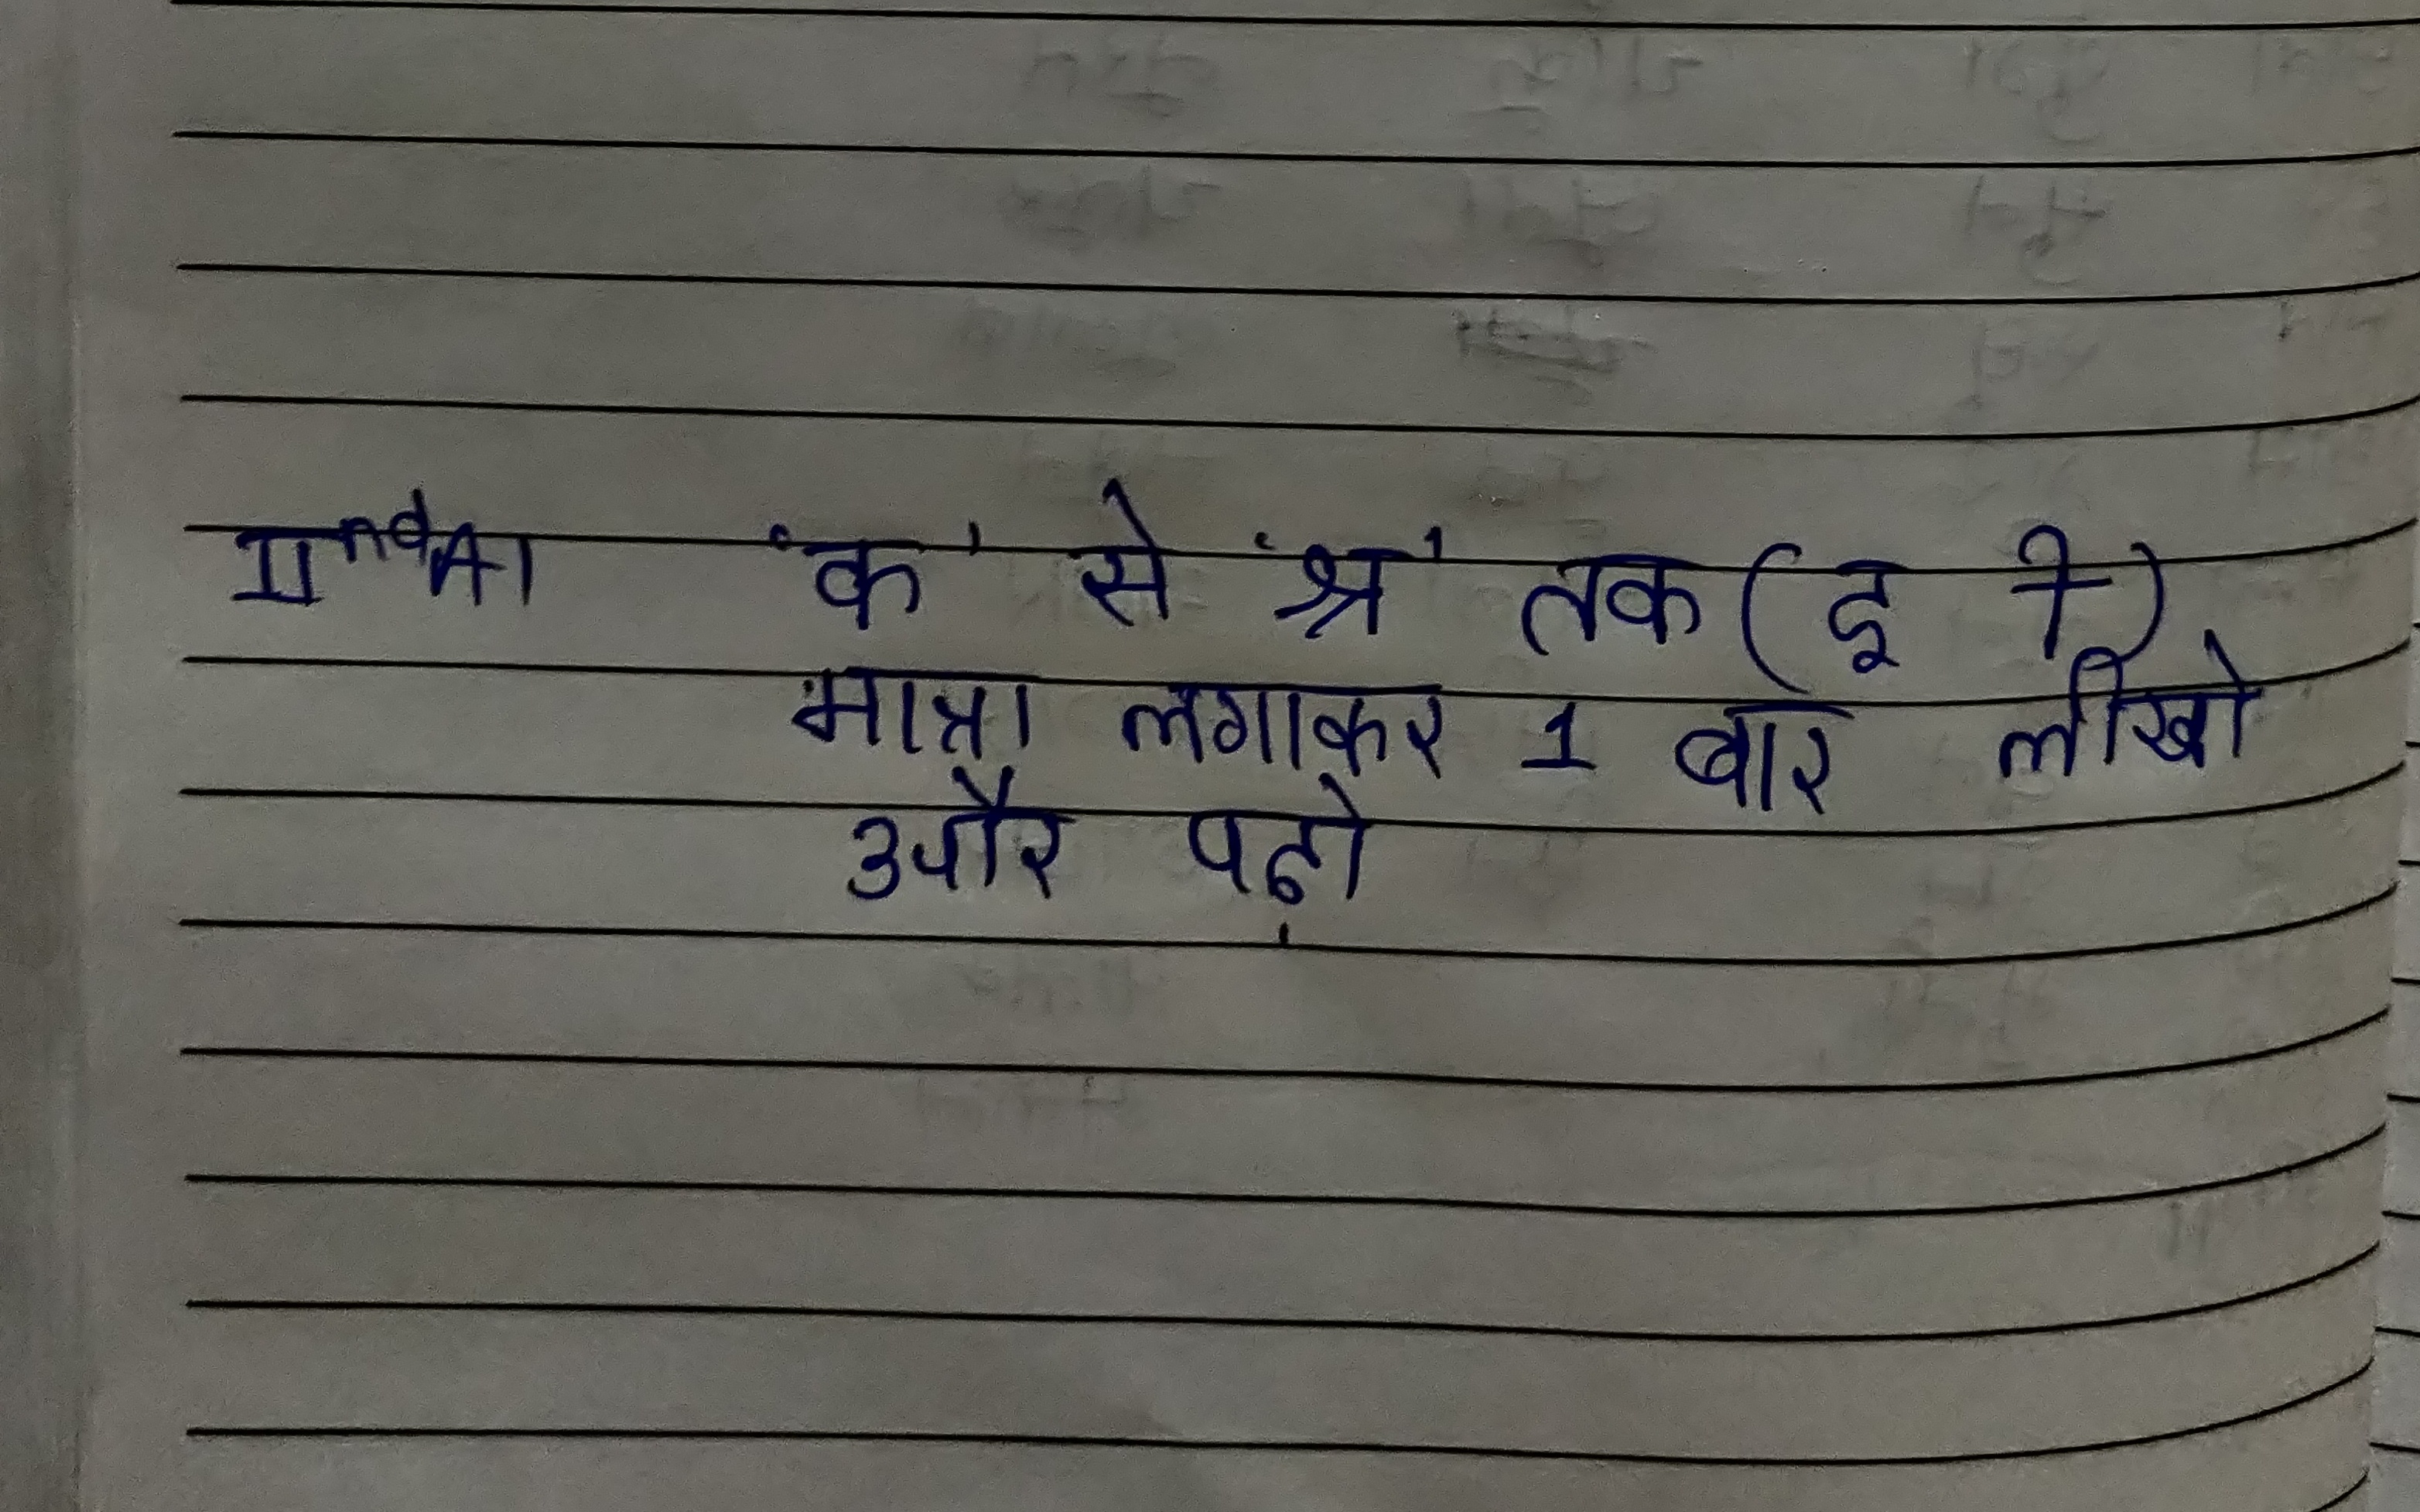 IIndA1 'क' से 'श्र' तक (इ ी)
मात्रा लगाकर 1 बार लीखो
और पढ़ो